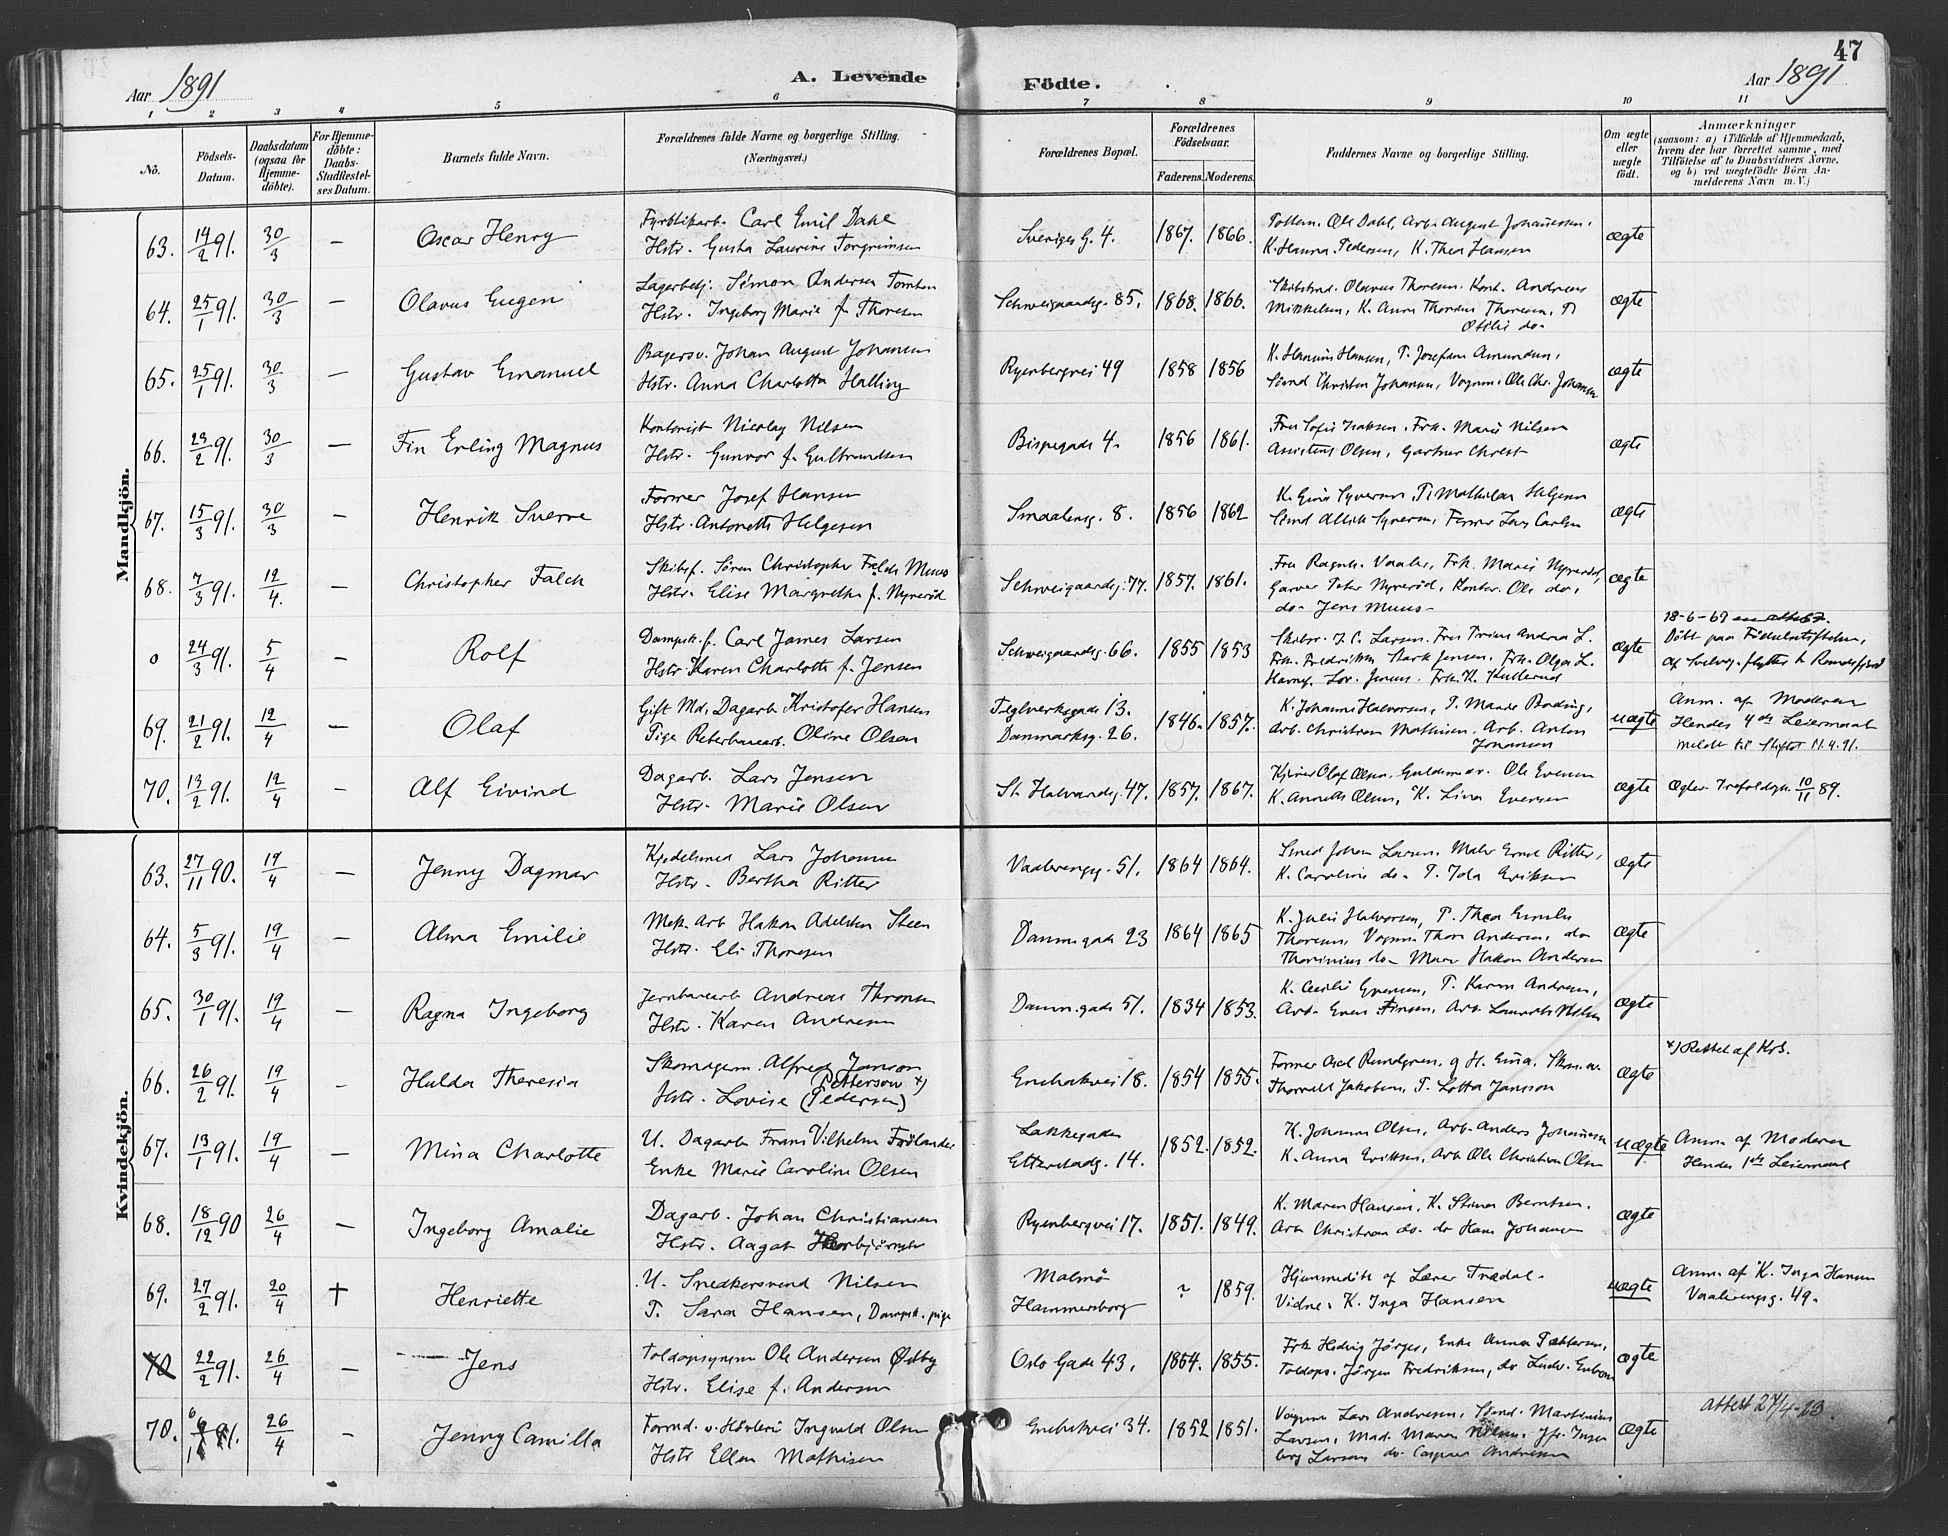 47
Aar 1891
A. Levende Födte.
Aar 1891
1 2 3 4 5 6 7 8 9 10 11
No.
Födsels-Datum.
Daabsdatum (ogsaa for Hjemme-döbte).
For Hjemme-döbte: Daabs-Stadfæstel-ses Datum.
Barnets fulde Navn.
Forældrenes fulde Navne og borgerlige Stilling. (Næringsvei.)
Forældrenes Bopæl.
Forældrenes Födselsaar.
Faderens. Moderens.
Faddernes Navne og borgerlige Stilling.
Om ægte eller uægte födt.
Anmærkninger
(saasom: a) i Tilfælde af Hjemmedaab, hvem der har forrettet samme, med Tilföielse af to Daabsvidners Navne, og b) ved uægtefödte Börn An-melderens Navn m. V.)
Mandkjön.
63. 14/2 91. 30/3 — Oscar Henry
Carl Emil Dahl
Hstr. Gusta Laurine Torgrimsen
Sveriges G. 4. 1867. 1866.
Ole Dahl, Arb. August Johannesen.
K. Hanna Pedersen, K. Thea Hansen
ægte
64. 25/1 91. 30/3 — Olavus Eugen
Lagerbetj. Simon Andersen
Hstr. Ingeborg Marie f. Thoresen
Schweigaardsg. 85. 1868. 1866.
Olavus Thoresen. Andreas
Mikkelsen, K. Anna Thoresen,
Otilie do.
ægte
65. 25/1 91. 30/3 — Gustav Emanuel
Bagersv. Johan August Johansen
Hstr. Anna Charlotta Halling
Ryenbergvei 49 1858 1856
K. Hansine Hansen, P. Josefine Amundsen,
Smed Christen Johansen, Vognm. Ole Chr. Johansen
ægte
66. 23/2 91. 30/3 — Fin Erling Magnus
Kontorist Nicolay Nilsen
Hstr. Gunvor f. Gulbrandsen
Bispegade 4. 1856 1861.
Fru Sofie Isaksen. Frk. Marie Nilsen
Assistent Olsen, Gartner Christ
ægte
67. 15/3 91. 30/3 — Henrik Sverre
Former Josef Hansen
Hstr. Antonette Helgesen
Smaalensg. 8. 1856 1862
K. Gina Syversen, P. Mathilde Helgesen
Smed Syversen, Former Carlsen
ægte
68. 7/3 91. 12/4. — Christopher Falck
Skibsf. Sören Christopher Falck Muus
Hstr. Elise Margrethe f. Nyrerød
Schweigaardsg. 77. 1857. 1861.
Fru Ragnh. Vaaler, Frk. Marie Nyrerød,
Garver Peter Nyrerød, Kontor. Ole do.
do. Jens Muus.
ægte
18-6-69 en attest.
0 24/3 91. 5/4 — Rolf
Dampsk. f. Carl James Larsen
Hstr. Karen Charlotte f. Jensen
Schweigaardsg. 66. 1855 1853
Skibsr. J. C. Larsen. Fru Trine Andrea L.
Frk. Fredrikke Jensen. Frk. Olga L.
ægte
Döbt paa Födselsstiftelsen,
69. 21/2 91. 12/4 — Olaf
Gift Md. Dagarb. Kristofer Hansen
Pige Reberbanearb. Oline Olsen
Teglverksgade 13.
Danmarksg. 26. 1846. 1857.
K. Johanne Halvorsen, P.
Arb. Christian Mathisen, Arb. Anton
Johansen
uægte
Anm. af Moderen
Hendes 4de Leiermaal
meldt til Skiftet 11.4.91.
70. 13/2 91. 12/4 — Alf Eivind
Dagarb. Lars Jensen
Hstr. Marie Olsen
St. Halvardsg. 47. 1857. 1867.
Olaf Olsen, Guldsmedsv. Ole Evensen
K. Annette Olsen, K. Lina Evensen
ægte
Ægtev. Trefoldigh. 10/11 89.
Kvindekjön.
63. 27/11 90. 19/4 — Jenny Dagmar
Kjedelsmed Lars Johansen
Hstr. Bertha Ritter
Vaalerengg. 51. 1864 1864.
Smed Johan Larsen. Maler Ernst Ritter,
K. Caroline do. P. Ida Eriksen
ægte
64. 5/3 91. 19/4 — Alma Emilie
Mek. Arb. Hakon Adelsten Steen
Hstr. Eli Thoresen
Danm.gade 23 1864 1865
K. Julie Halvorsen, P. Thea Emilie
Thoresen, Vognm. Thor Andersen, do
Thorinius do. Hakon Andersen
ægte
65. 30/1 91. 19/4 — Ragna Ingeborg
Jernbanearb. Andreas Thronsen
Hstr. Karen Andresen
Danm.gade 51. 1834 1853.
K. Cecilie Evensen, P. Karen Andresen,
Arb. Even Jensen, Arb. Laurits Nilsen
ægte
66. 26/2 91. 19/4 — Hulda Theresia
Skomagerm. Alfred Janson
Hstr. Lovise (Petterson x)
(Pedersen)
Enebakvei 18. 1854 1855.
Former Axel Rundgren. og H. Eina. Skom.sv.
Thorvald Jakobsen, P. Lotta Janson
ægte
x) Rettet af Krb.
67. 13/1 91. 19/4 — Mina Charlotte
U. Dagarb. Frans Vilhelm Frölander
Enke Marie Caroline Olsen
Lakkegaden
Etterstadg. 14. 1852. 1852.
K. Johanne Olsen, Arb. Anders Johannesen
K. Anna Eriksen, Arb. Ole Christian Olsen
uægte
Anm. af Moderen
Hendes 1ste Leiermaal
68. 18/12 90 26/4 — Ingeborg Amalie
Dagarb. Johan Christiansen
Hstr. Aagot Thorbjörnsen
Ryenbergvei 17. 1851. 1849.
K. Maren Hansen, K. Stina Berntsen.
Arb. Christian do. do Hans Johansen
ægte
69. 27/2 91. 20/4 † Henriette
U. Snedkersvend Nilsen
P. Sara Hansen, Dampsk. pige
Malmö
Hammersborg ? 1859.
Hjemmedöbt af Lærer Trædal.
Vidne: K. Inga Hansen
uægte
Anm. af K. Inga Hansen
Vaalerengg. 49.
70 22/2 91. 26/4 — Jens
Toldopsynsm. Ole Andersen Østby
Hstr. Elise f. Andersen
Oslo Gade 43. 1864. 1855.
Frk. Hedvig Jörges, Enke Anna Pettersen.
Toldops. Jörgen Fredriksen, do Ludv.
ægte
70. 6/1 91. 26/4 — Jenny Camilla
Formd. v. Hövleri Ingvald Olsen
Hstr Ellen Mathisen
Enebakvei 34. 1852 1851.
Vognm. Lars Andresen, Smed. Martinius
Larsen, Mad. Maren Nilsen. Jfr. Inge
borg Larsen do. Caspara Andresen
ægte
attest 27/4-23.